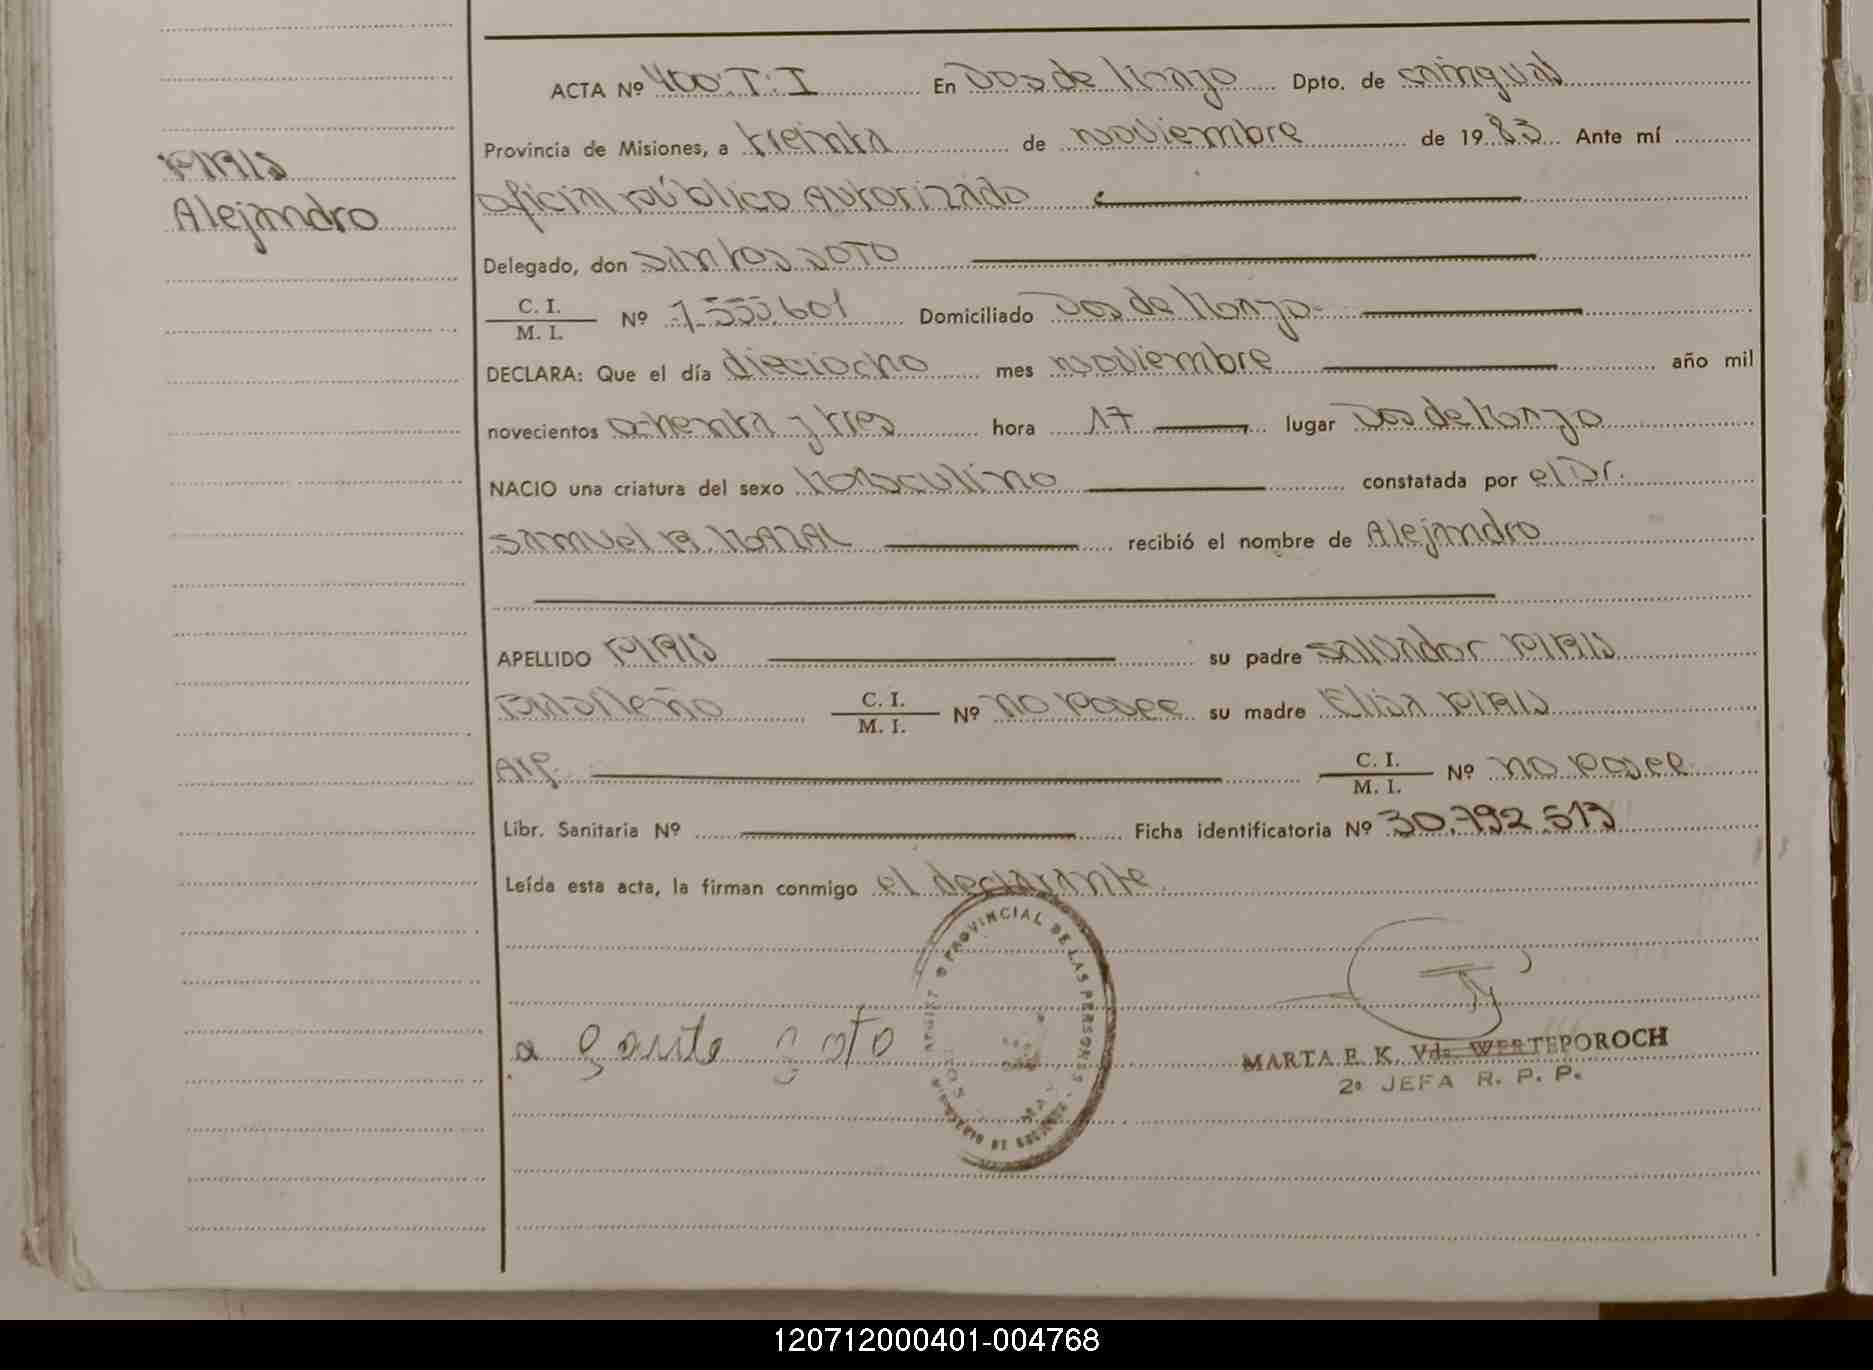 ACTA Nº 400.T.I En Dos de Mayo Dpto. de Cainguás
Provincia de Misiones, a treinta de noviembre de 1983 Ante mí
PIRIS
Alejandro
oficial público autorizado
Delegado, don Santos SOTO
C. I.
M. I. Nº 7.555.601 Domiciliado Dos de Mayo.
DECLARA: Que el día dieciocho mes noviembre año mil
novecientos ochenta y tres hora 17 lugar Dos de Mayo
NACIO una criatura del sexo Masculino constatada por el Dr.
Samuel R. recibió el nombre de Alejandro
APELLIDO PIRIS su padre Salvador PIRIS
Brasileño C. I.
M. I. Nº no posee su madre Elisa PIRIS
Arg. C. I.
M. I. Nº no posee
Libr. Sanitaria Nº Ficha identificatoria Nº 30.792.519
Leída esta acta, la firman conmigo el declarante
PROVINCIAL DE LAS PERSONAS
MARTA E. K. Vda. WERTEPOROCH
2ª JEFA R. P. P.
120712000401-004768